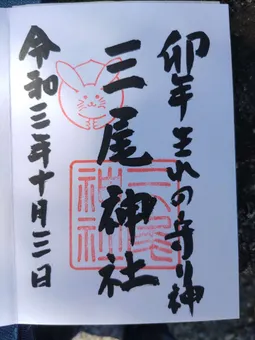 卯年生れの守り神
三尾神社
三尾神社
令和三年十月三日